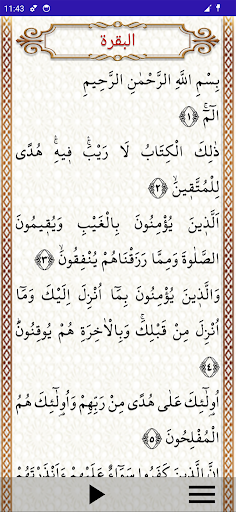 11:43
البقرة
بِسْمِ اللَّهِ الرَّحْمٰنِ الرَّحِيمِ
الٓمٓۚ ﴿١﴾
ذٰلِكَ الْكِتَابُ لَا رَيْبَۛ فِيهِۛ هُدًى
لِلْمُتَّقِينَۙ ﴿٢﴾
اَلَّذِينَ يُؤْمِنُونَ بِالْغَيْبِ وَيُقِيمُونَ
الصَّلٰوةَ وَمِمَّا رَزَقْنَاهُمْ يُنْفِقُونَۙ ﴿٣﴾
وَالَّذِينَ يُؤْمِنُونَ بِمَٓا اُنْزِلَ اِلَيْكَ وَمَٓا
اُنْزِلَ مِنْ قَبْلِكَۚ وَبِالْاٰخِرَةِ هُمْ يُوقِنُونَۜ
﴿٤﴾
اُو۬لٰٓئِكَ عَلٰى هُدًى مِنْ رَبِّهِمْ وَاُو۬لٰٓئِكَ هُمُ
الْمُفْلِحُونَ ﴿٥﴾
اِنَّ الَّذِينَ كَفَرُوا سَوَٓاءٌ عَلَيْهِمْ ءَاَنْذَرْتَهُمْ